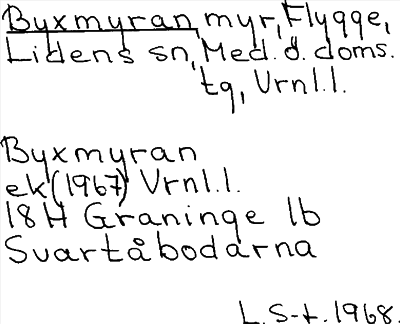 Byxmyran, myr, Flygge,
Lidens sn, Med. ö. doms.
tg, Vrnl.l.
Byxmyran
ek (1967) Vrnl.l.
18H Graninge 1b
Svartåbodarna
L. S-t. 1968.